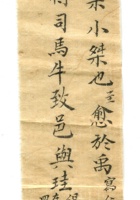 小桀也至愈於禹寫
司馬牛致邑與珪